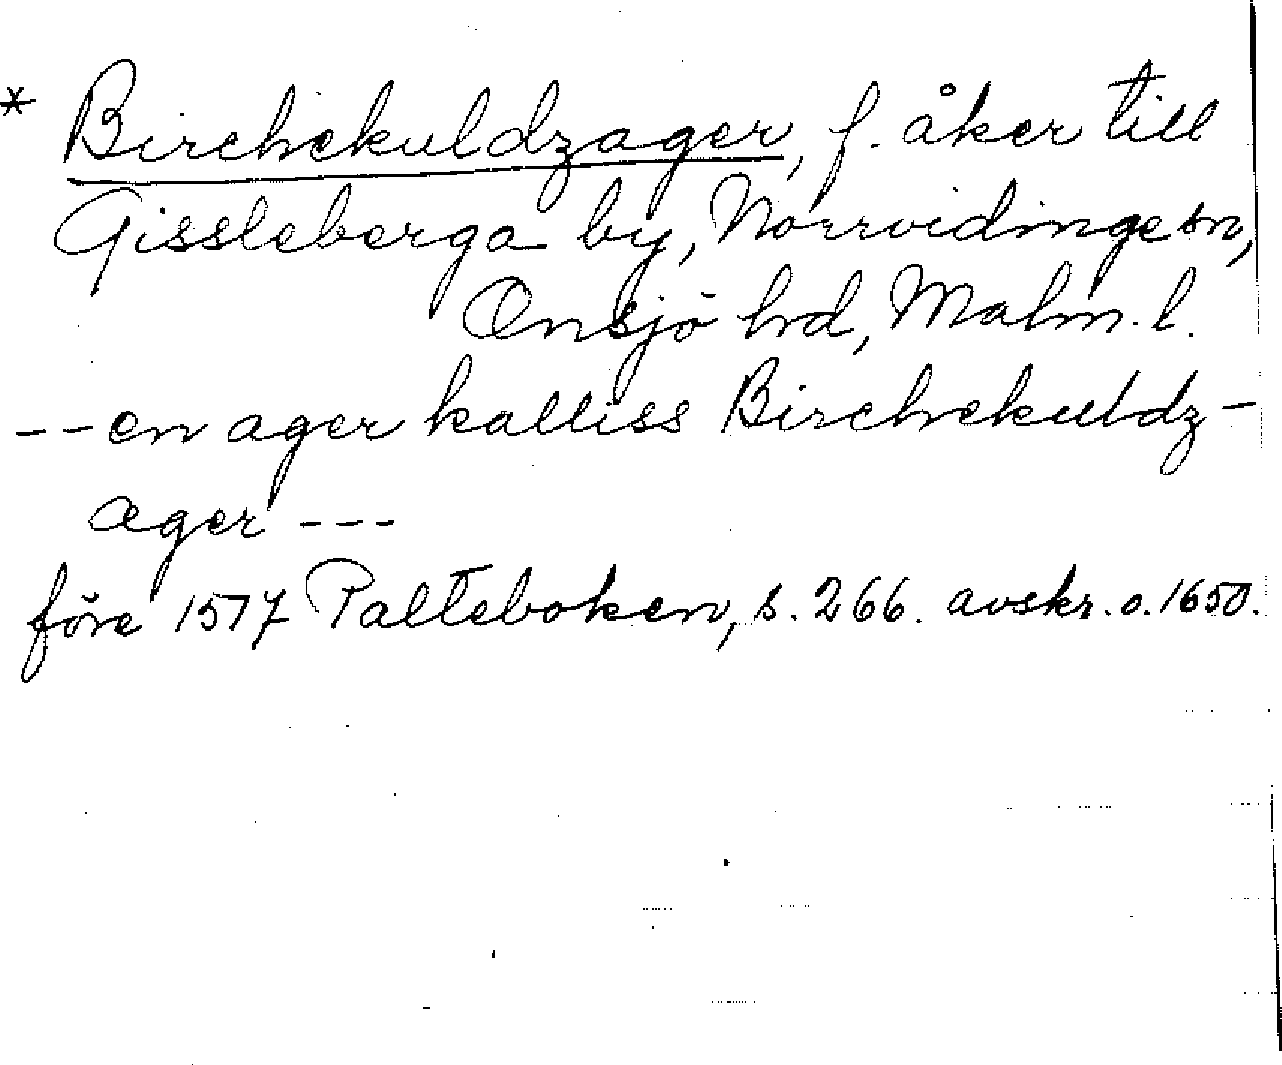 * Birchekuldzager, f. åker till
Gissleberga by, Norrvidinge sn,
Onsjö hd, Malm. l.
-- en ager kalliss Birchekuldz-
ager ---
före 1577 Palteboken, s. 266. avskr. o. 1650.